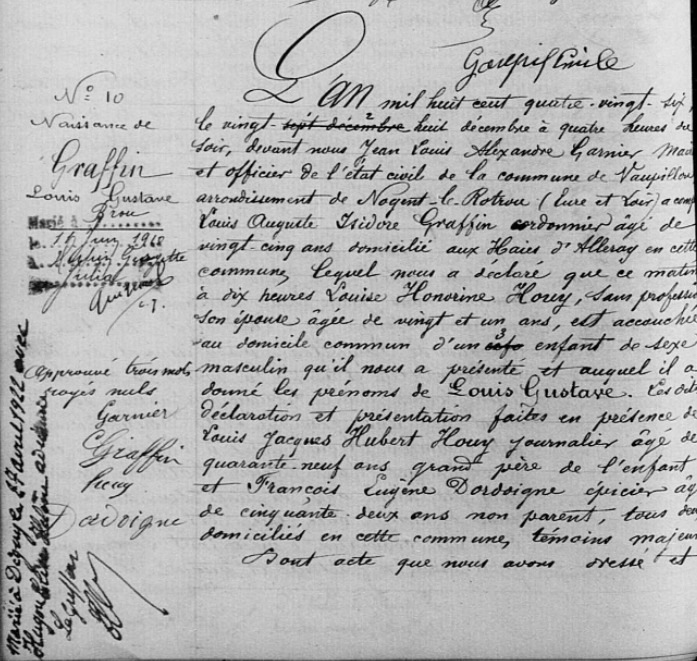 L'an mil huit cent quatre-vingt-six
le vingt-sept décembre huit décembre à quatre heures du
soir, devant nous Jean Louis Alexandre Garnier Mai
et officier de l'état civil de la commune de Vaupillon
arrondissement de Nogent-le-Rotrou (Eure et Loir) a comp
Louis Auguste Isidore Graffin cordonnier âgé de
vingt-cinq ans domicilié aux Haies d'Alleray en cette
commune, lequel nous a déclaré que ce matin
à dix heures Louise Honorine Houy, sans professi
son épouse âgée de vingt et un ans, est accouchée
au domicile commun d'un enfant de sexe
masculin qu'il nous a présenté et auquel il a
donné les prénoms de Louis Gustave. Les dit
déclaration et présentation faites en présence de
Louis Jacques Hubert Houy journalier âgé de
quarante-neuf ans grand père de l'enfant
et François Eugène Dordoigne épicier âg
de cinquante-deux ans non parent, tous deu
domiciliés en cette commune, témoins majeur
Dont acte que nous avons dressé et
No 10
Naissance de
Graffin
Louis Gustave
Marié à Brou
le Juin
Approuvé trois mots
rayés nuls
Garnier
Graffin
Houy
Dordoigne
Marié à Digny le 27 avril 1922 avec